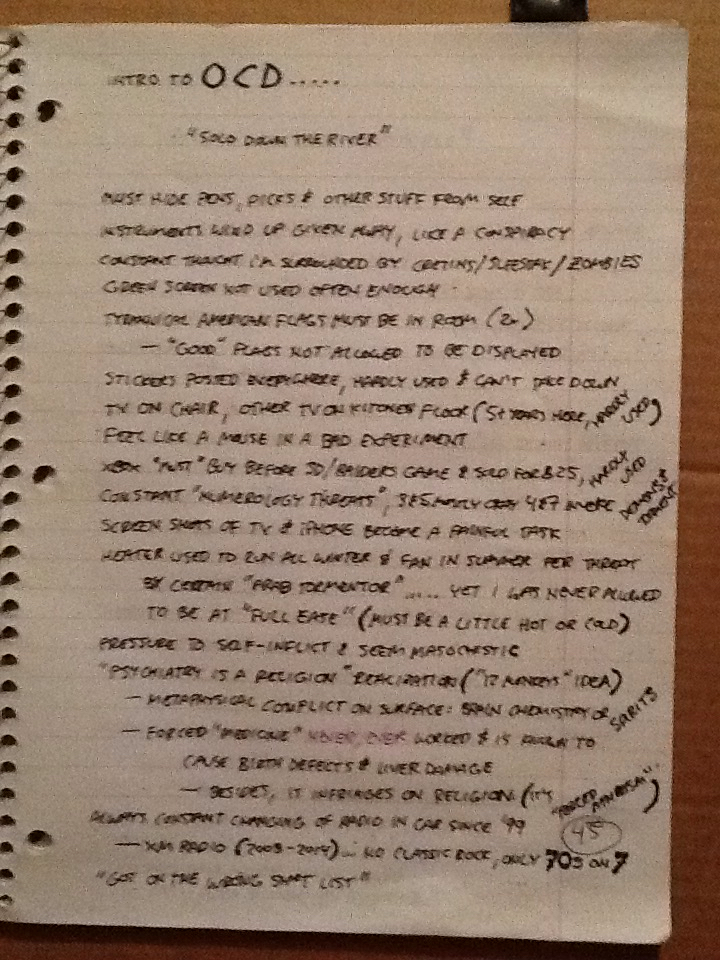 INTRO TO OCD.....
"SOLD DOWN THE RIVER"
MUST HIDE PENS, PICKS & OTHER STUFF FROM SELF
INSTRUMENTS WIND UP GIVEN AWAY, LIKE A CONSPIRACY
CONSTANT THOUGHT I'M SURROUNDED BY CRETINS/SLEESTAK/ZOMBIES
GREEN SCREEN NOT USED OFTEN ENOUGH
TYRANNICAL AMERICAN FLAGS MUST BE IN ROOM (2x)
— "GOOD" FLAGS NOT ALLOWED TO BE DISPLAYED
STICKERS POSTED EVERYWHERE, HARDLY USED & CAN'T TAKE DOWN
TV ON CHAIR, OTHER TV ON KITCHEN FLOOR (5+ YEARS HERE, HARDLY USED)
FEEL LIKE A MOUSE IN A BAD EXPERIMENT
XBOX "MUST" BUY BEFORE SD/RAIDERS GAME & SOLD FOR $25, HARDLY USED
CONSTANT "NUMEROLOGY THREATS", 3&5 MOSTLY 4&7 MORE DEMONS &
SCREEN SHOTS OF TV & IPHONE BECOME A PAINFUL TASK
HEATER USED TO RUN ALL WINTER & FAN IN SUMMER PER THREAT
BY CERTAIN "ARAB TORMENTOR"..... YET I WAS NEVER ALLOWED
TO BE AT "FULL EASE" (MUST BE A LITTLE HOT OR COLD)
PRESSURE TO SELF-INFLICT & SEEM MASOCHISTIC
"PSYCHIATRY IS A RELIGION" REALIZATION ("12 MONKEYS" IDEA)
— METAPHYSICAL CONFLICT ON SURFACE: BRAIN CHEMISTRY OR SPIRITS
— FORCED "MEDICINE" NEVER, EVER WORKED & IS KNOWN TO
CAUSE BIRTH DEFECTS & LIVER DAMAGE
— BESIDES, IT INFRINGES ON RELIGION (IT'S "FORCED )
ALWAYS CONSTANT CHANGING OF RADIO IN CAR SINCE '99
45
— XM RADIO (2003-2014)... NO CLASSIC ROCK, ONLY 70S ON 7
"GOT ON THE WRONG SHIT LIST"